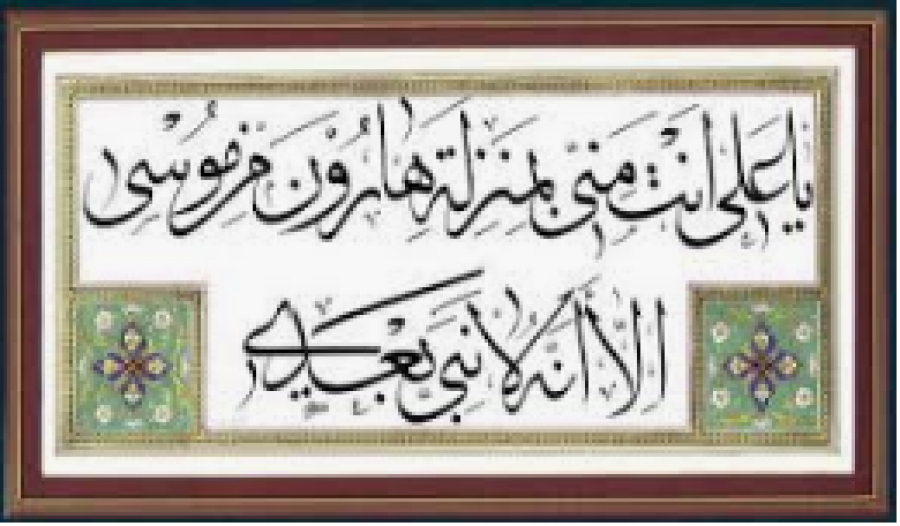 يا علي أنت مني بمنزلة هارون من موسى
إلا أنه لا نبي بعدي